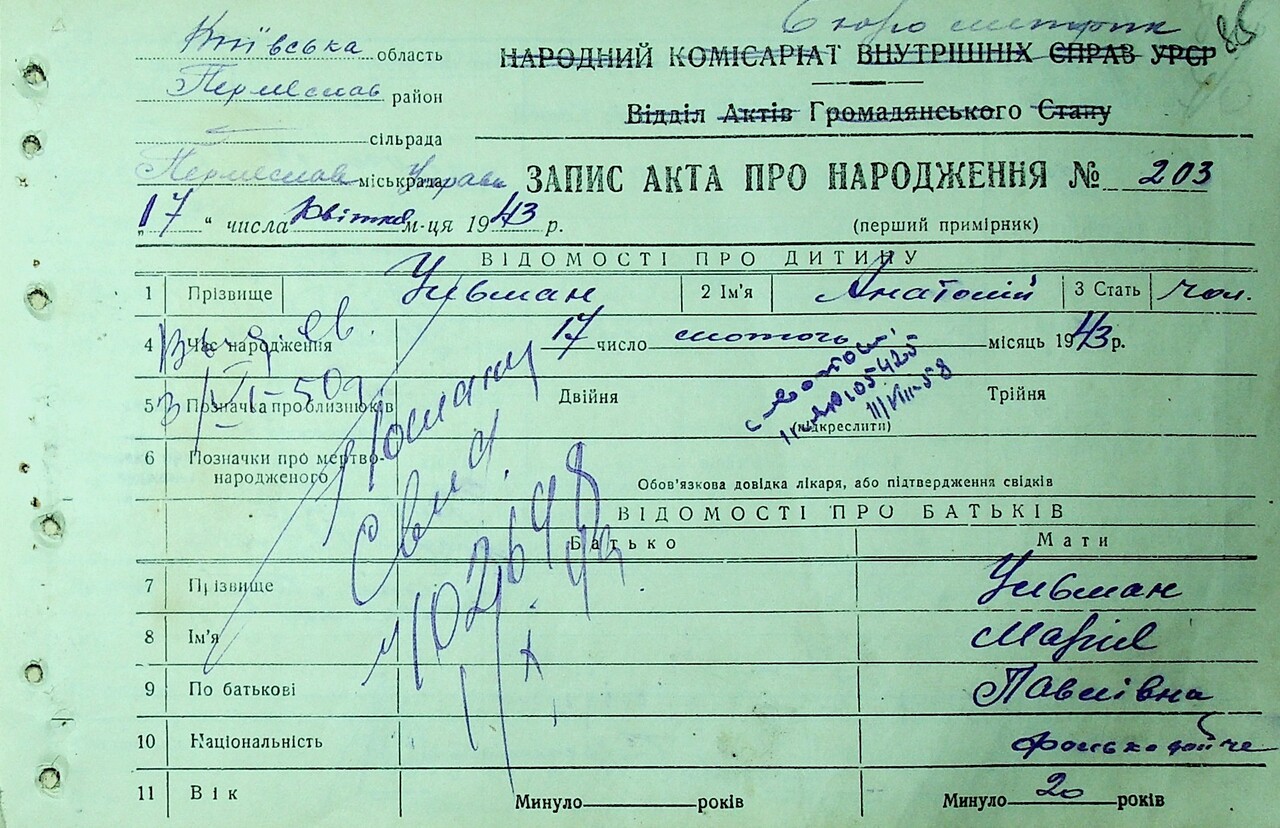 Бюро метрик
Київська область НАРОДНИЙ КОМІСАРІАТ ВНУТРІШНІХ СПРАВ УРСР
Переяслав район
Відділ Актів Громадянського Стану
сільрада
Переяслав міськрада Управа ЗАПИС АКТА ПРО НАРОДЖЕННЯ № 203
„17“ числа квітня м-ця 1943 р. (перший примірник)
ВІДОМОСТІ ПРО ДИТИНУ
1 Прізвище Ульман 2 Ім'я Анатолій 3 Стать чол.
4 Час народження 17 число лютого місяць 1943 р.
5 Позначка про близнюків Двійня Трійня
(підкреслити)
6 Позначки про мертво-
народженого
Обов'язкова довідка лікаря, або підтвердження свідків
ВІДОМОСТІ ПРО БАТЬКІВ
Батько Мати
7 Прізвище Ульман
8 Ім'я Марія
9 По батькові Павлівна
10 Національність фолькдойче
11 Вік Минуло років Минуло 20 років